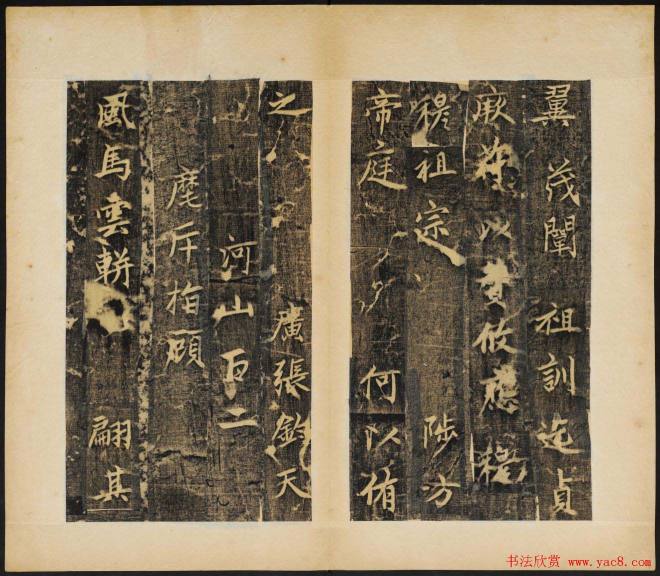 翼 茂闡 祖訓迄貞
厥 以 攸應 穆
穆祖宗 陟方
帝庭 何以侑
之 廣張鈞天
河山百二
麾斥指顧
風馬雲軿 翩其
书法欣赏 www.yac8.com